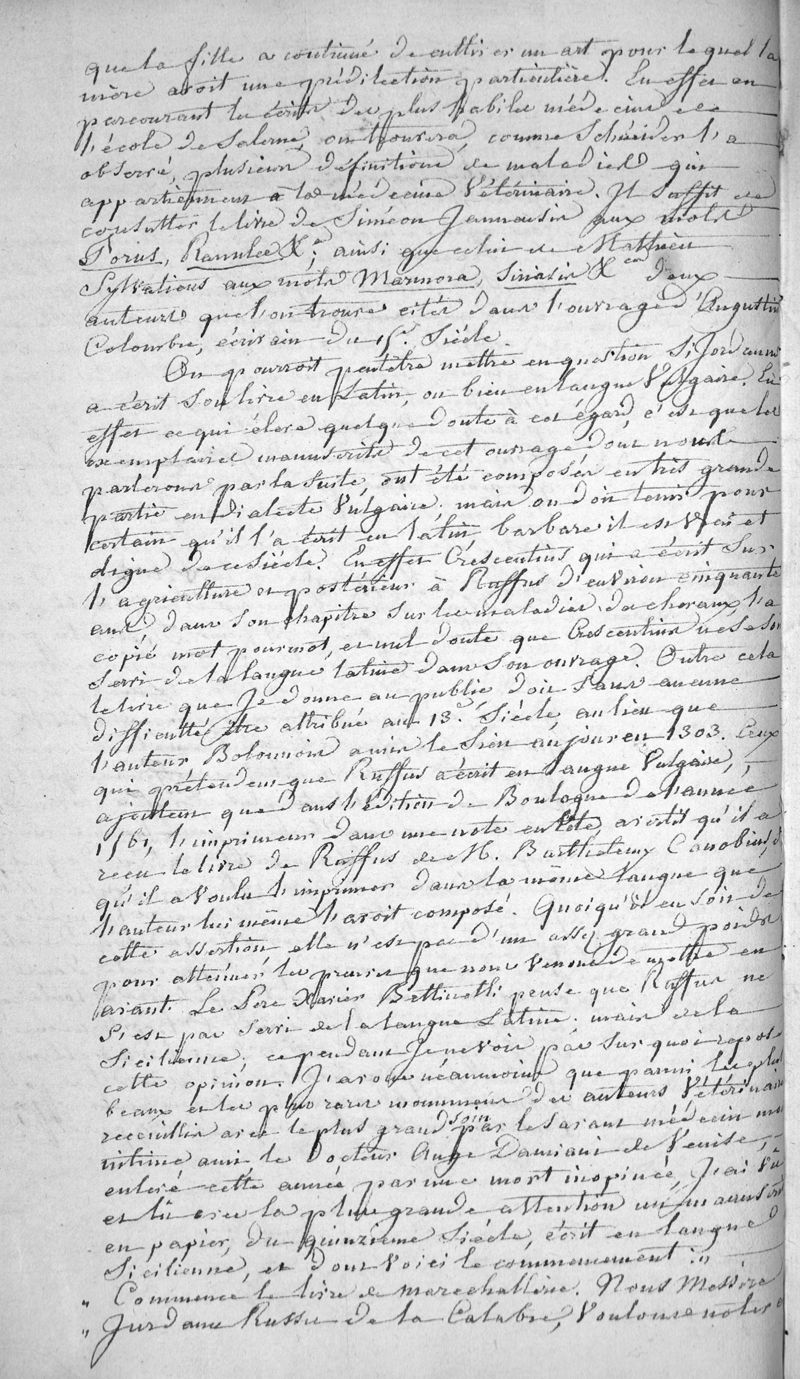 que la fille a continué de cultiver un art pour lequel la
mère avoit une prédilection particulière. En effet en
parcourant les écrits des plus habiles médecins de
l'école de Salerne, on trouvera, comme Schneider l'a
observé, plusieurs définitions de maladies qui
appartiennent à la médecine Vétérinaire. Il suffit de
consulter le livre de Siméon Januensis aux mots
Porius, Rannulae &a; ainsi que celui de Mathieu
Sylvaticus aux mots Marmora, Sinasia &a deux
auteurs que l'on trouve cités dans l'ouvrage d'Augustin
Colombre, écrivain du 15e. Siècle.
On pourroit peutêtre mettre en question si Jordanus
a écrit son livre en Latin, ou bien en langue Vulgaire. En
effet ce qui élève quelque doute à cet égard, c'est que les
exemplaires manuscrits de cet ouvrage dont nous
parlerons par la suite, ont été composés en très grande
partie en dialecte Vulgaire. mais on doit tenir pour
certain qu'il l'a écrit en latin, barbare il est vrai et
digne de ce siècle. En effet Crescentius qui a écrit sur
l'agriculture et postérieur à Ruffus d'environ cinquante
ans, dans son chapitre sur les maladies des chevaux, l'a
copié mot pour mot, et nul doute que Crescentius ne se soit
servi de la langue latine dans son ouvrage. Outre cela
le livre que Je donne au public, doit sans aucune
difficulté être attribué au 13e. Siècle, au lieu que
l'auteur Bolonnois a mis le sien au jour en 1303. Ceux
qui prétendent que Ruffus a écrit en langue Vulgaire,
ajoutent que dans l'édition de Boulogne de l'année
1561, l'imprimeur dans une note en tête, avertit qu'il a
reçu le livre de Ruffus de M. Barthelemy Canobius,
qu'il a voulu l'imprimer dans la même langue que
l'auteur lui même l'avoit composé. Quoiqu'il en soit de
cette assertion elle n'est pas d'un assez grand poids
pour atténuer les preuves que nous venons de mettre en
avant. Le Père Xavier Bettinelli pense que Ruffus ne
s'est pas servi de la langue Latine. mais de la
Sicilienne; cependant Je ne vois pas sur quoi repose
cette opinion. J'avoue néanmoins que parmi les plus
beaux et les plus rares monumens des auteurs Vétérinaires
recueillis avec le plus grand soin par le savant médecin mon
intime ami le Docteur Ange Damiani de Venise,
enlevé cette année par une mort inopinée, J'ai Vu
et lû avec la plus grande attention un manuscrit
en papier, du quinzième Siècle, écrit en langue
Sicilienne, et dont voici le commencement: "
" Commence le livre de marechallerie. Nous Messire
" Jurdanu Russu de la Calabre, Voulons noter